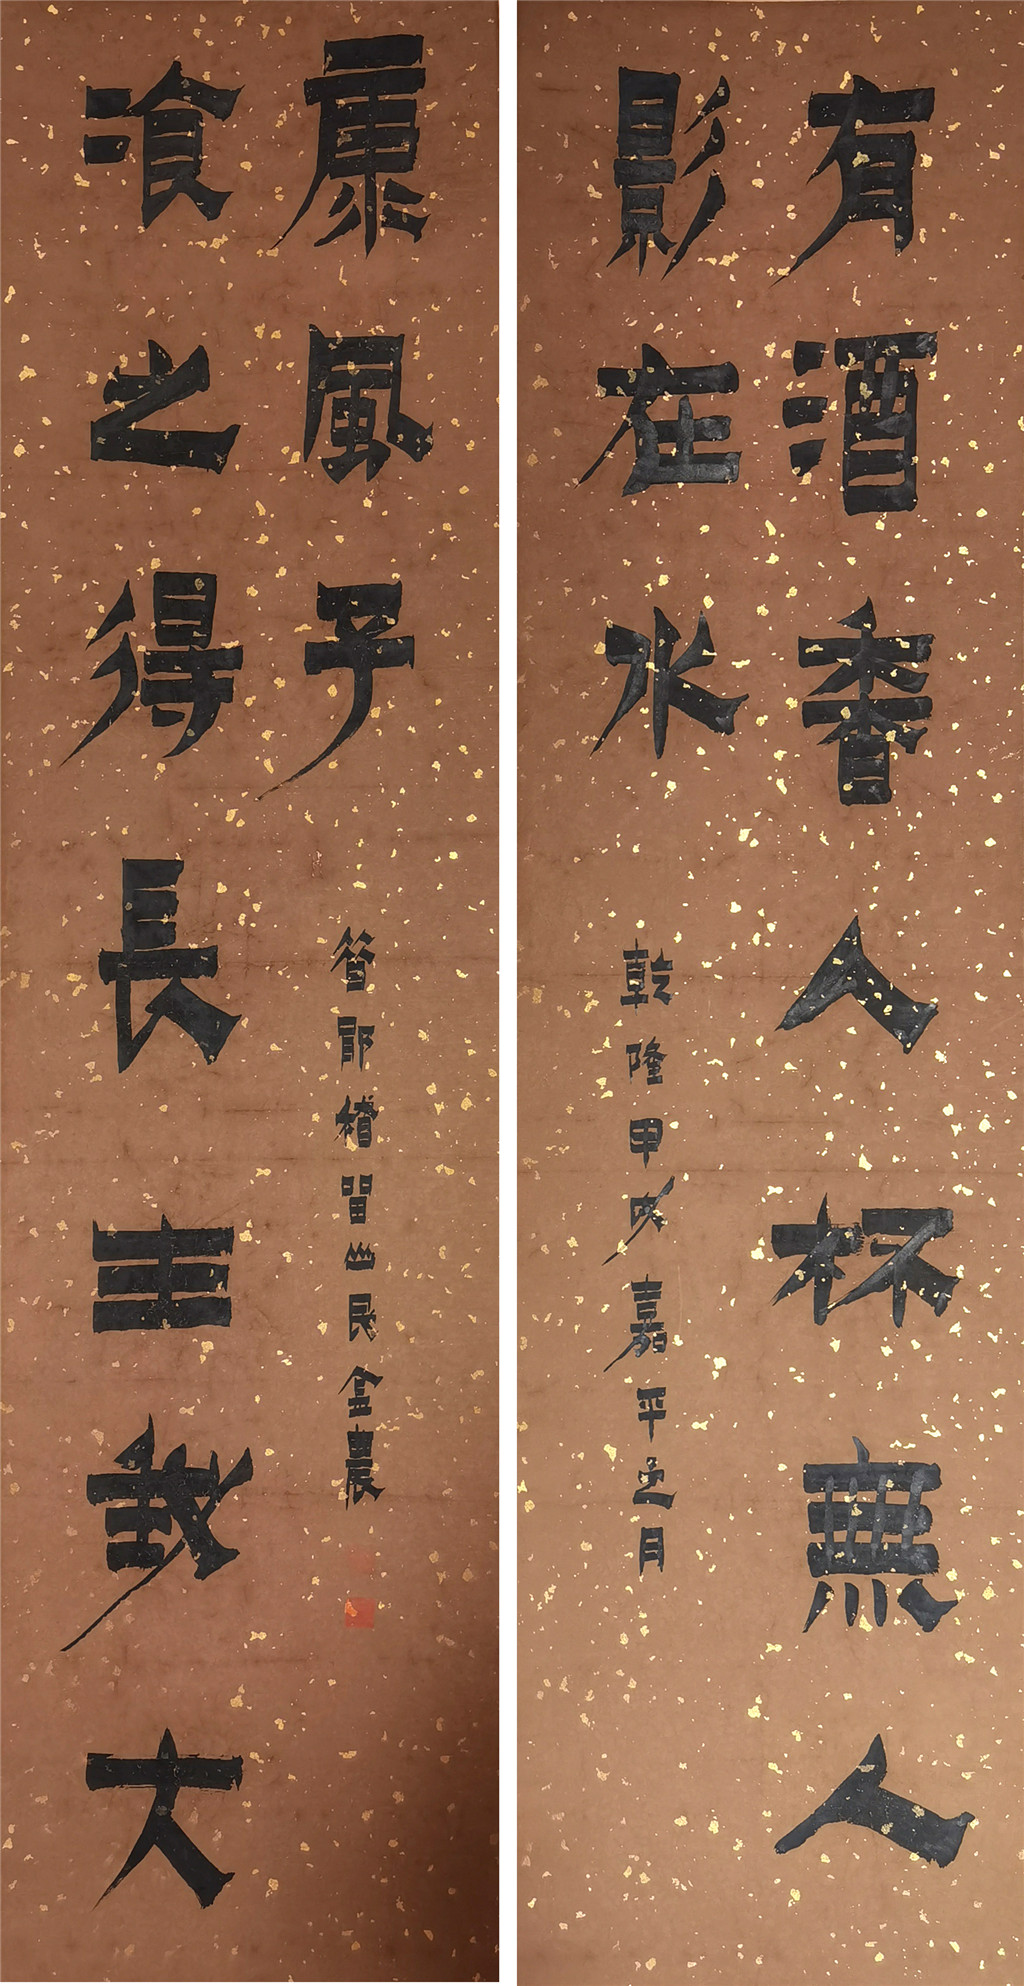 有酒香人杯無人
影在水
乾隆甲戌嘉平之月
飡之得長生我大
康風予
昔耶稽留山民金農